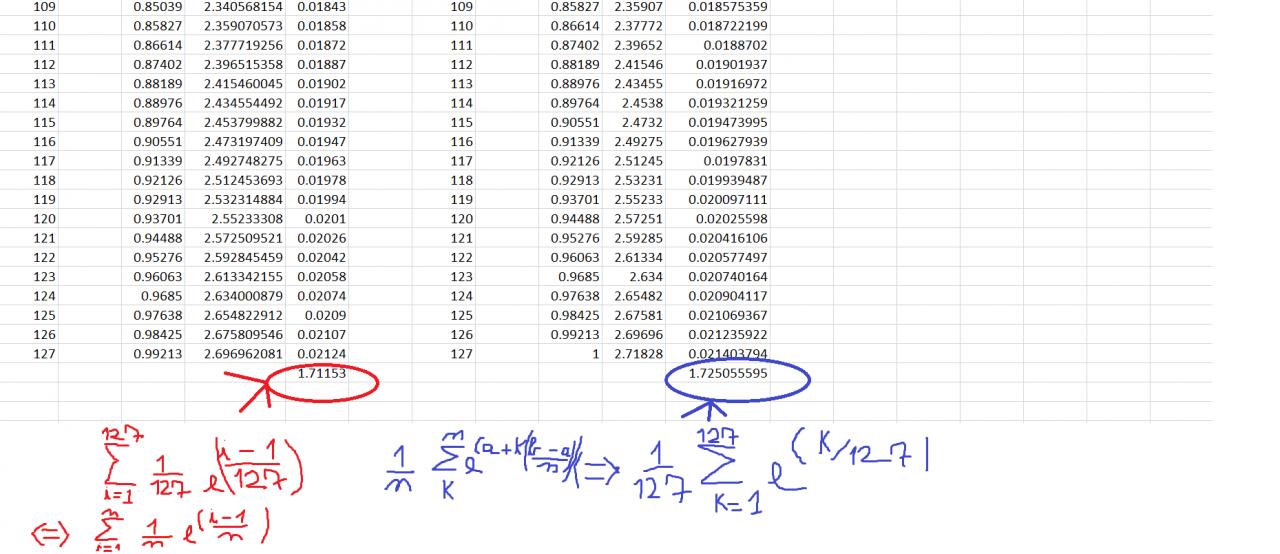 109 0.85039 2.340568154 0.01843 109 0.85827 2.35907 0.018575359
110 0.85827 2.359070573 0.01858 110 0.86614 2.37772 0.018722199
111 0.86614 2.377719256 0.01872 111 0.87402 2.39652 0.0188702
112 0.87402 2.396515358 0.01887 112 0.88189 2.41546 0.01901937
113 0.88189 2.415460045 0.01902 113 0.88976 2.43455 0.01916972
114 0.88976 2.434554492 0.01917 114 0.89764 2.4538 0.019321259
115 0.89764 2.453799882 0.01932 115 0.90551 2.4732 0.019473995
116 0.90551 2.473197409 0.01947 116 0.91339 2.49275 0.019627939
117 0.91339 2.492748275 0.01963 117 0.92126 2.51245 0.0197831
118 0.92126 2.512453693 0.01978 118 0.92913 2.53231 0.019939487
119 0.92913 2.532314884 0.01994 119 0.93701 2.55233 0.020097111
120 0.93701 2.55233308 0.0201 120 0.94488 2.57251 0.02025598
121 0.94488 2.572509521 0.02026 121 0.95276 2.59285 0.020416106
122 0.95276 2.592845459 0.02042 122 0.96063 2.61334 0.020577497
123 0.96063 2.613342155 0.02058 123 0.9685 2.634 0.020740164
124 0.9685 2.634000879 0.02074 124 0.97638 2.65482 0.020904117
125 0.97638 2.654822912 0.0209 125 0.98425 2.67581 0.021069367
126 0.98425 2.675809546 0.02107 126 0.99213 2.69696 0.021235922
127 0.99213 2.696962081 0.02124 127 1 2.71828 0.021403794
1.71153 1.725055595
∑_{i=1}^{127} 1/127 e^(i-1/127) 1/n ∑_K^n e^(a+k(b-a/n)) => 1/127 ∑_{K=1}^{127} e^(K/127)
<=> ∑_{i=1}^n 1/n e^(i-1/n)